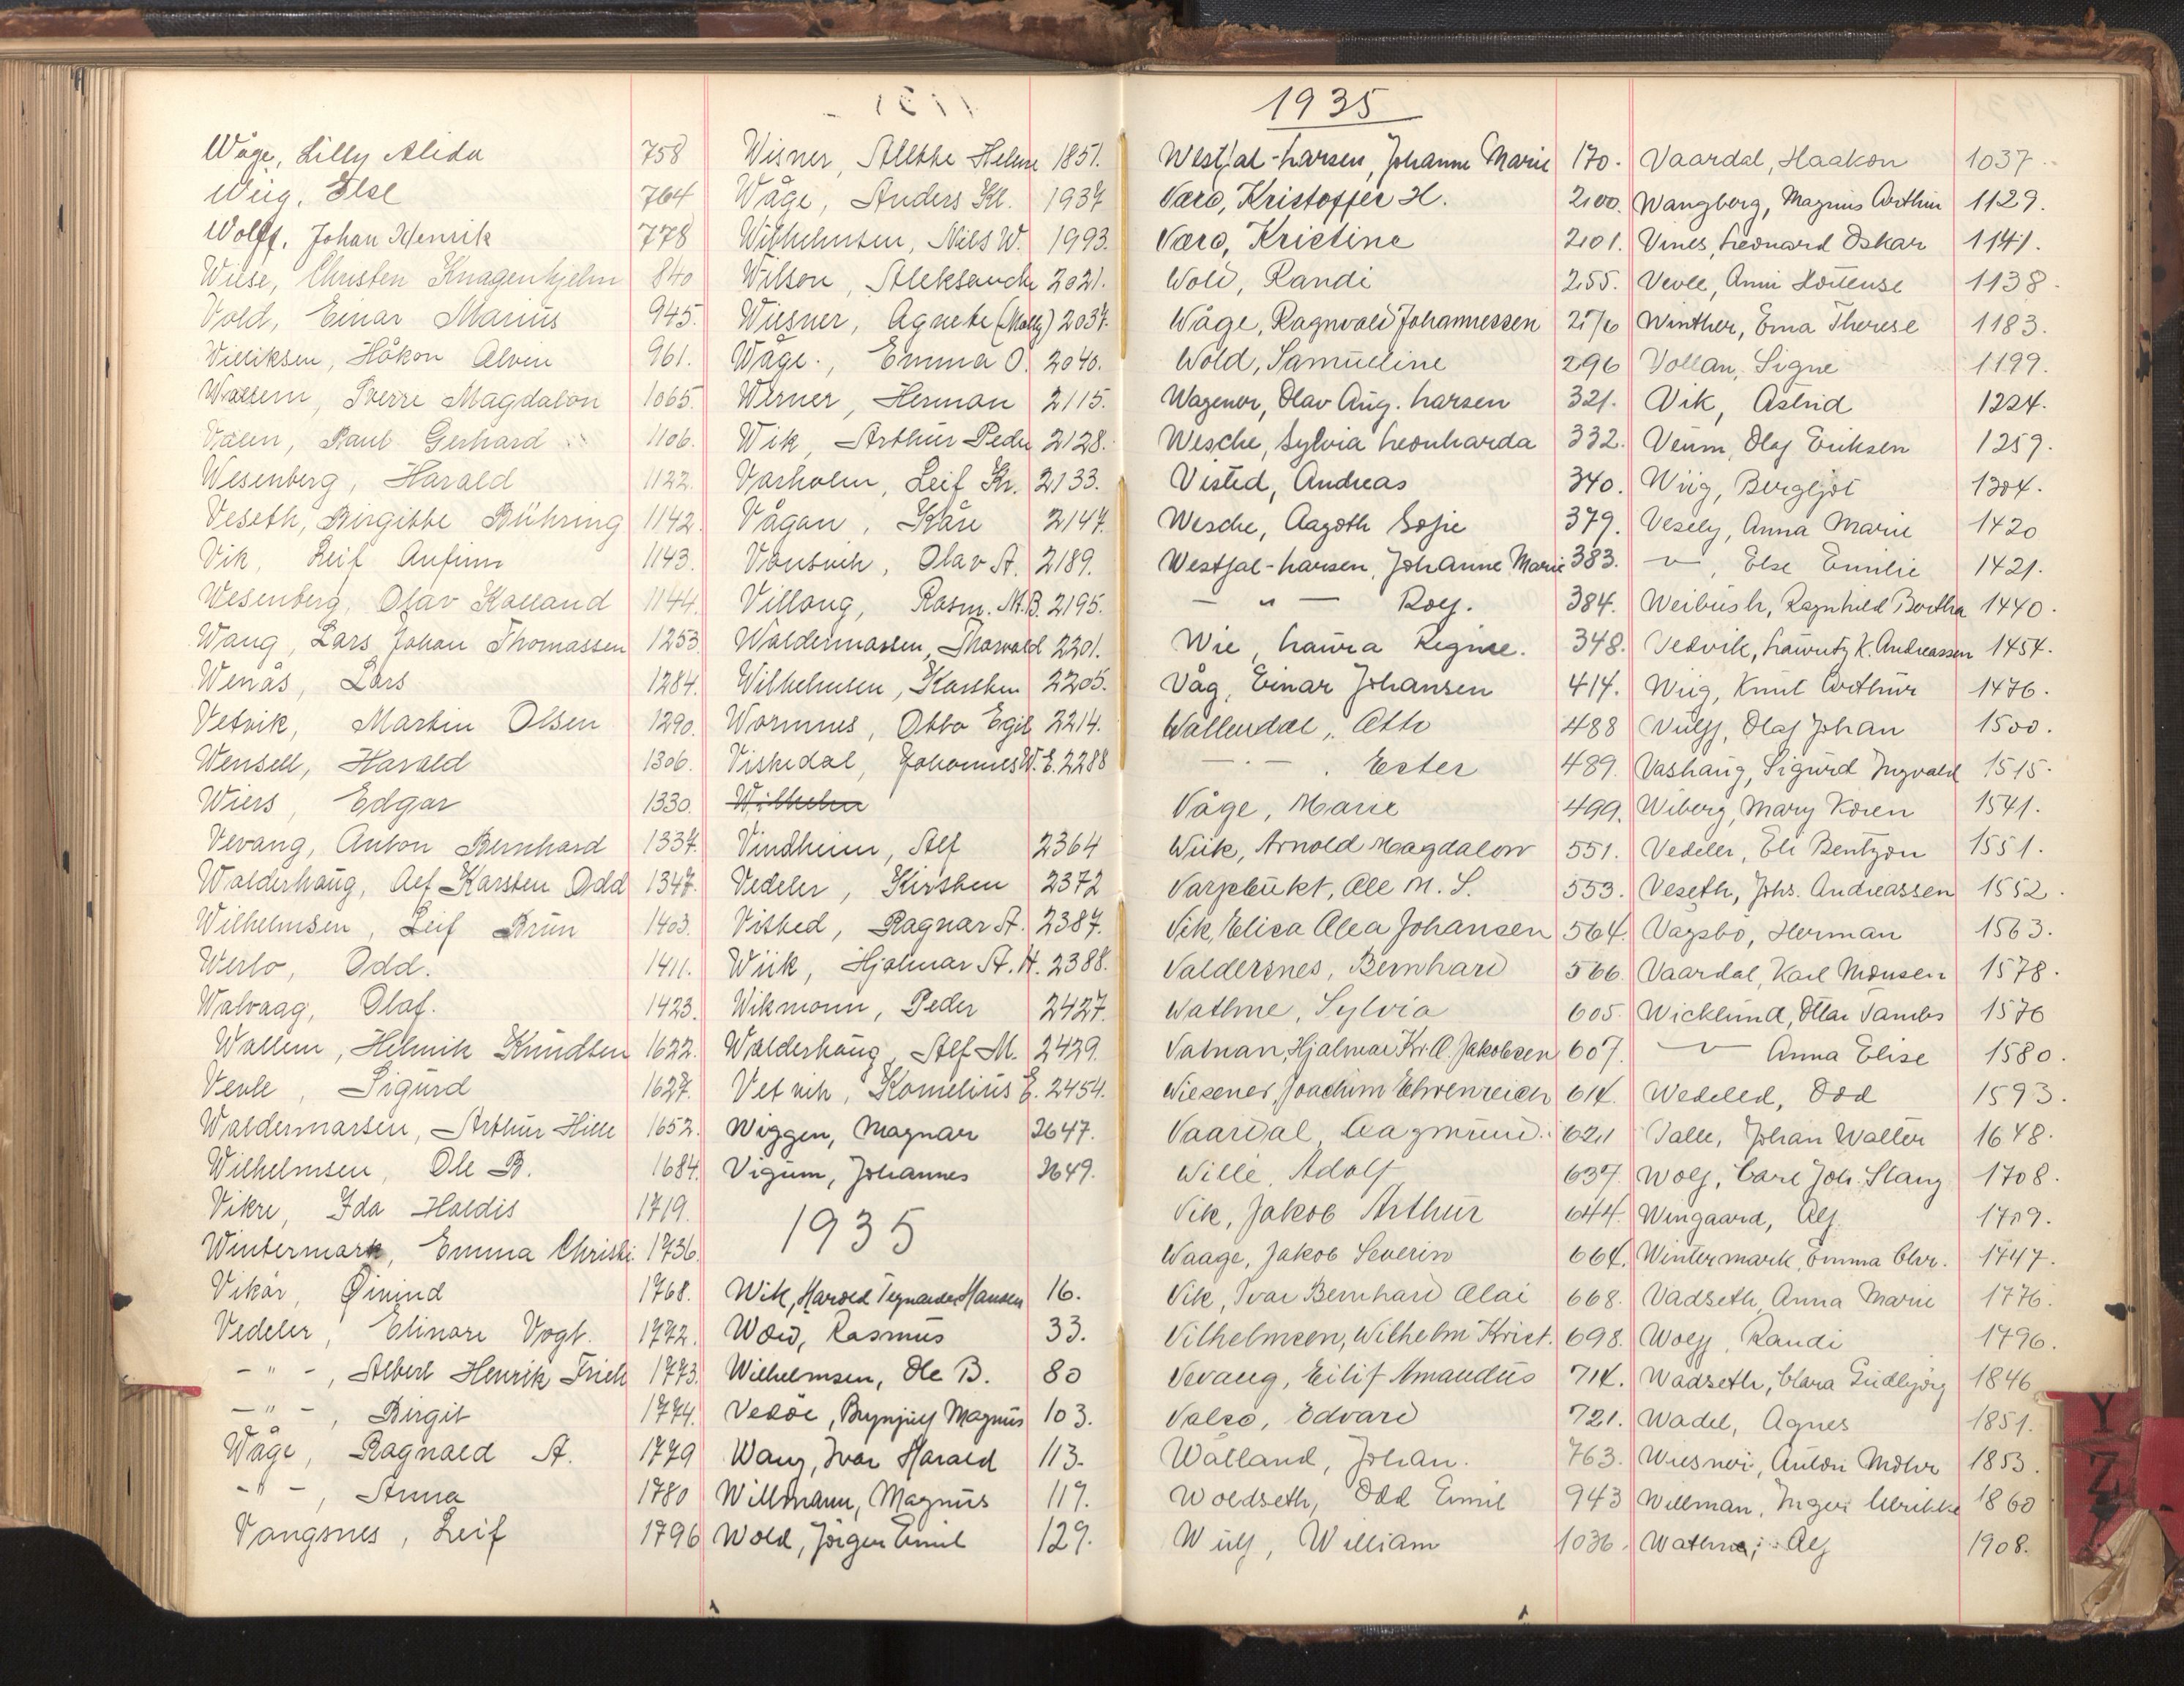 Wåge, Lilly Alida 758
Wiig, Else 764
Wolff, Johan Henrik 778
Wiese, Christen Knagenhjelm 840
Vold, Einar Marius 945.
Villiksen, Håkon Alvin 961.
Wallem, Sverre Magdalon 1065.
Valen, Paul Gerhard 1106.
Wesenberg, Harald 1122.
Veseth, Birgitte Bühring 1142.
Vik, Leif Anfinn 1143.
Wesenberg, Olav Kalland 1144.
Wang, Lars Johan Thomassen 1253
Wenås, Lars 1284.
Vetvik, Martin Olsen 1290.
Wensell, Harald 1306.
Wiers, Edgar 1330.
Vevang, Anton Bernhard 1337.
Walderhaug, Alf Karsten Odd 1347.
Wilhelmsen, Leif Brun 1403.
Werlo, Odd. 1411.
Walvaag, Olaf. 1423.
Wallem, Helmik Knudsen 1622.
Vevle, Sigurd 1627.
Waldermarsen, Arthur Hille 1652.
Wilhelmsen, Ole B. 1684.
Vikre, Ida Haldis 1719.
Wintermark, Emma Christi. 1736.
Vikør, Øivind 1768.
Vedeler, Elinare Vogt. 1772.
- " -, Albert Henrik Frich 1773.
- " -, Birgit 1774.
Wåge, Ragnald A. 1779
- " -, Anna 1780
Vangsnes, Leif 1796
Wisner, Helene 1851.
Wåge, Anders Kl. 1937
Wilhelmsen, Nils W. 1993.
Wilson, Aleksander 2021.
Wiesner, Agnete (Molly) 2037.
Wåge, Emma O. 2040.
Werner, Herman 2115.
Wik, Arthur Peder 2128.
Varholm, Leif Kr. 2133.
Vågan, Kåre 2147.
Olav A. 2189.
Villang, Rasm. M.B. 2195.
Waldermarsen, Thorvald 2201.
Wilhelmsen, Karsten 2205.
Wormnes, Otto Egil 2214.
Viskedal, Johannes W. E. 2288
Wilhelm
Vindheim, Alf 2364
Vedeler, Kirsten 2372
Visted, Ragnar A. 2387.
Wiik, Hjalmar A. H. 2388.
Wikmann, Peder 2427.
Walderhaug, Alf M. 2429.
Vetvik, Kornelius E. 2454.
Wiggen, Magnar 2647.
Vigum, Johannes 2649.
1935
Wik, Harald Hansen 16.
Wold, Rasmus 33.
Wilhelmsen, Ole B. 80
Vedøe, Brynjulf Magnus 103.
Wang, Ivar Harald 113.
Willmann, Magnus 119.
Wold, Jørgen Emil 129.
1935
Westfal-Larsen, Johanne Marie 170.
Værø, Kristoffer H. 200.
Værø, Kristine 201.
Wold, Randi 255.
Wåge, Ragnvald Johannessen
Wold, Samueline 296
Wagener, Olav Aug. Larsen 321.
Wesche, Sylvia Leonharda 332.
Visted, Andreas 340.
Wesche, Aagoth Sofie 379.
Westfal-Larsen, Johanne Marie 383.
- " - Roy. 384.
Wie, Laura Regine. 348.
Våg, Einar Johansen 414.
Wallendal, Otto 488
- " - . Ester 489.
Våge, Marie 499.
Wiik, Arnold Magdalon 551.
Ole M. S. 553.
Vik, Elisa Olea Johansen 564.
Valdersnes, Bernhard 566.
Wathne, Sylvia 605.
Vatnan, Hjalmar Kr. O. Jakobsen 607.
Wiesener, Joachim Ehrenreich 614.
Vaardal, Aagmund. 621
Wille, Adolf 637.
Vik, Jakob Arthur 644.
Waage, Jakob Severin 664.
Vik, Ivar Bernhard Olai 668.
Vilhelmsen, Wilhelm Krist. 698.
Vevang, Eilif Amandus 714.
Valsø, Edvard 721.
Walland, Johan. 763.
Woldseth, Odd Emil 943
Wulf, William 1036.
Vaardal, Haakon 1037.
Wangberg, Magnus Arthur 1129.
Vines, Leonard Oskar 1141.
Vevle, Anni Hortense 1138.
Winther, Erna Therese 1183.
Vollan, Signe 1199.
Vik, Astrid 1224.
Veum, Olaf Eriksen 1259.
Wiig, Bergljot 1304.
Vesely, Anna Marie 1420
- " -, Else Emilie 1421.
Weibush, Ragnhild Bertha 1440.
Vedvik, Lauritz K. Andreassen 1454.
Wiig, Knut Arthur 1476.
Wulff, Olaf Johan 1500.
Vashaug, Sigurd Ingvald 1515.
Wiberg, Mary Koren 1541.
Vedeler, Eli Bentzon 1551.
Veseth, Johs. Andreassen 1552.
Vågsbø, Herman 1563.
Vaardal, Karl Monsen 1578.
Wicklund, Ottar Tambs 1576
- " - Anna Elise 1580.
Wedeled, Odd 1593.
Valle, Johan Walter 1648.
Wolf, Carl Joh. Stang 1708.
Wingaard, Alf. 1709.
Wintermark, Emma Chr. 1747.
Vadseth, Anna Marie 1776.
Wolff, Randi 1796.
Wadseth, Clara Gudbjørg 1846
Wadel, Agnes 1851.
Wiesner, Anton Mohr 1853.
Willman, Inger Ulrikke 1860
Wathne, Alf 1908.
Y
Z